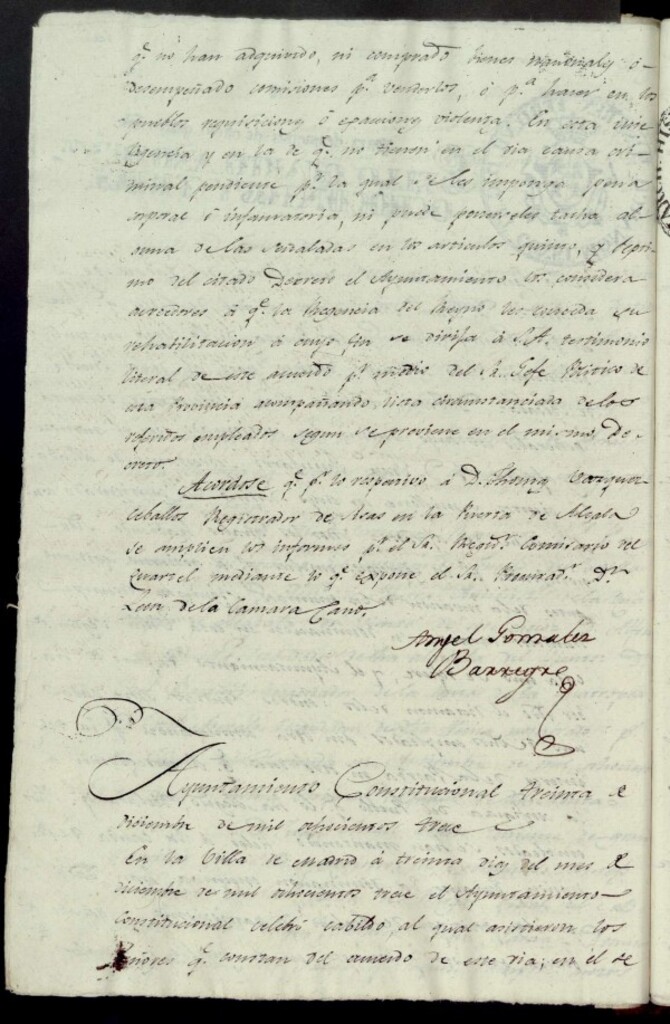 q.e no han adquirido, ni comprado bienes nacionales ó
desempeñado comisiones p.a venderlos, ó p.a hacer en los
pueblos requisiciones ó exacciones violentas. En esta inte
ligencia y en la de q.e no tienen en el dia causa cri-
minal pendiente p.r la qual se les imponga pena
corporal ó infamatoria, ni puede ponerseles tacha al
guna de las señaladas en los articulos quinto, y septi-
mo del citado Decreto el Ayuntamiento los considera
acreedores á q.e la Regencia del Reyno les conceda su
rehabilitacion á cuyo fin se dirija á S.A. testimonio
literal de este acuerdo p.r medio del S.r Gefe Politico de
esta Provincia acompañando lista circunstanciada de los
referidos empleados segun se previene en el mismo De-
creto.
Acordose q.e p.r lo respectivo á D. Thomas Vazquez
Ceballos Registrador de Casas en la Puerta de Alcala
se amplien los informes p.r el S.r Regid.r Comisario del
Quartel mediante lo q.e expone el S.r Procurad.r D.n
Leon de la Camara Cano.
Angel Gonzalez
Barreyro
Ayuntamiento Constitucional treinta de
Diciembre de mil ochocientos trece
En la Villa de Madrid á treinta dias del mes de
diciembre de mil ochocientos trece el Ayuntamiento
Constitucional celebró cabildo, al qual asistieron los
Señores q.e constan del acuerdo de este dia; en él se